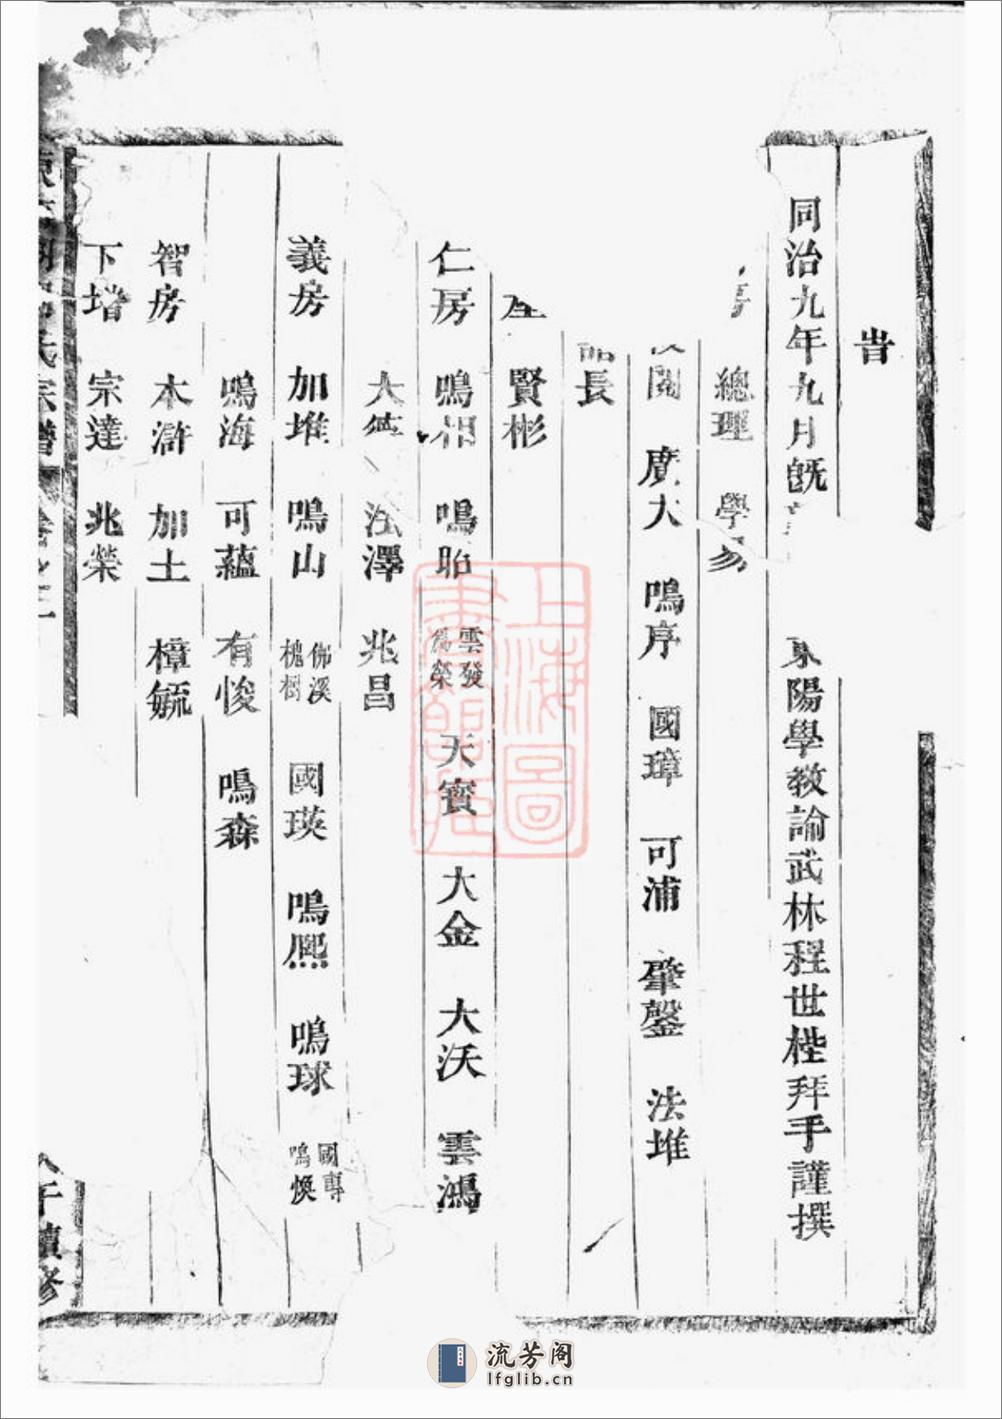 旹
同治九年九月旣
東陽學教諭武林程世梐拜手謹撰
總理 學易
閱 廣大 鳴序 國璋 可浦 肇鏧 法堆
長
賢彬
仁房 鳴相 鳴昭 雲發 爲榮 天寶 大金 大沃 雲鴻
大 法澤 兆昌
義房 加堆 鳴山 佛溪 槐樹 國瑛 鳴熙 鳴球 國專 鳴煥
鳴海 可蘊 有悛 鳴森
智房 本滸 加土 樟毓
下堦 宗達 兆榮
氏宗譜 卷之二
午續修
上海圖書館藏
流芳阁
lfglib.cn